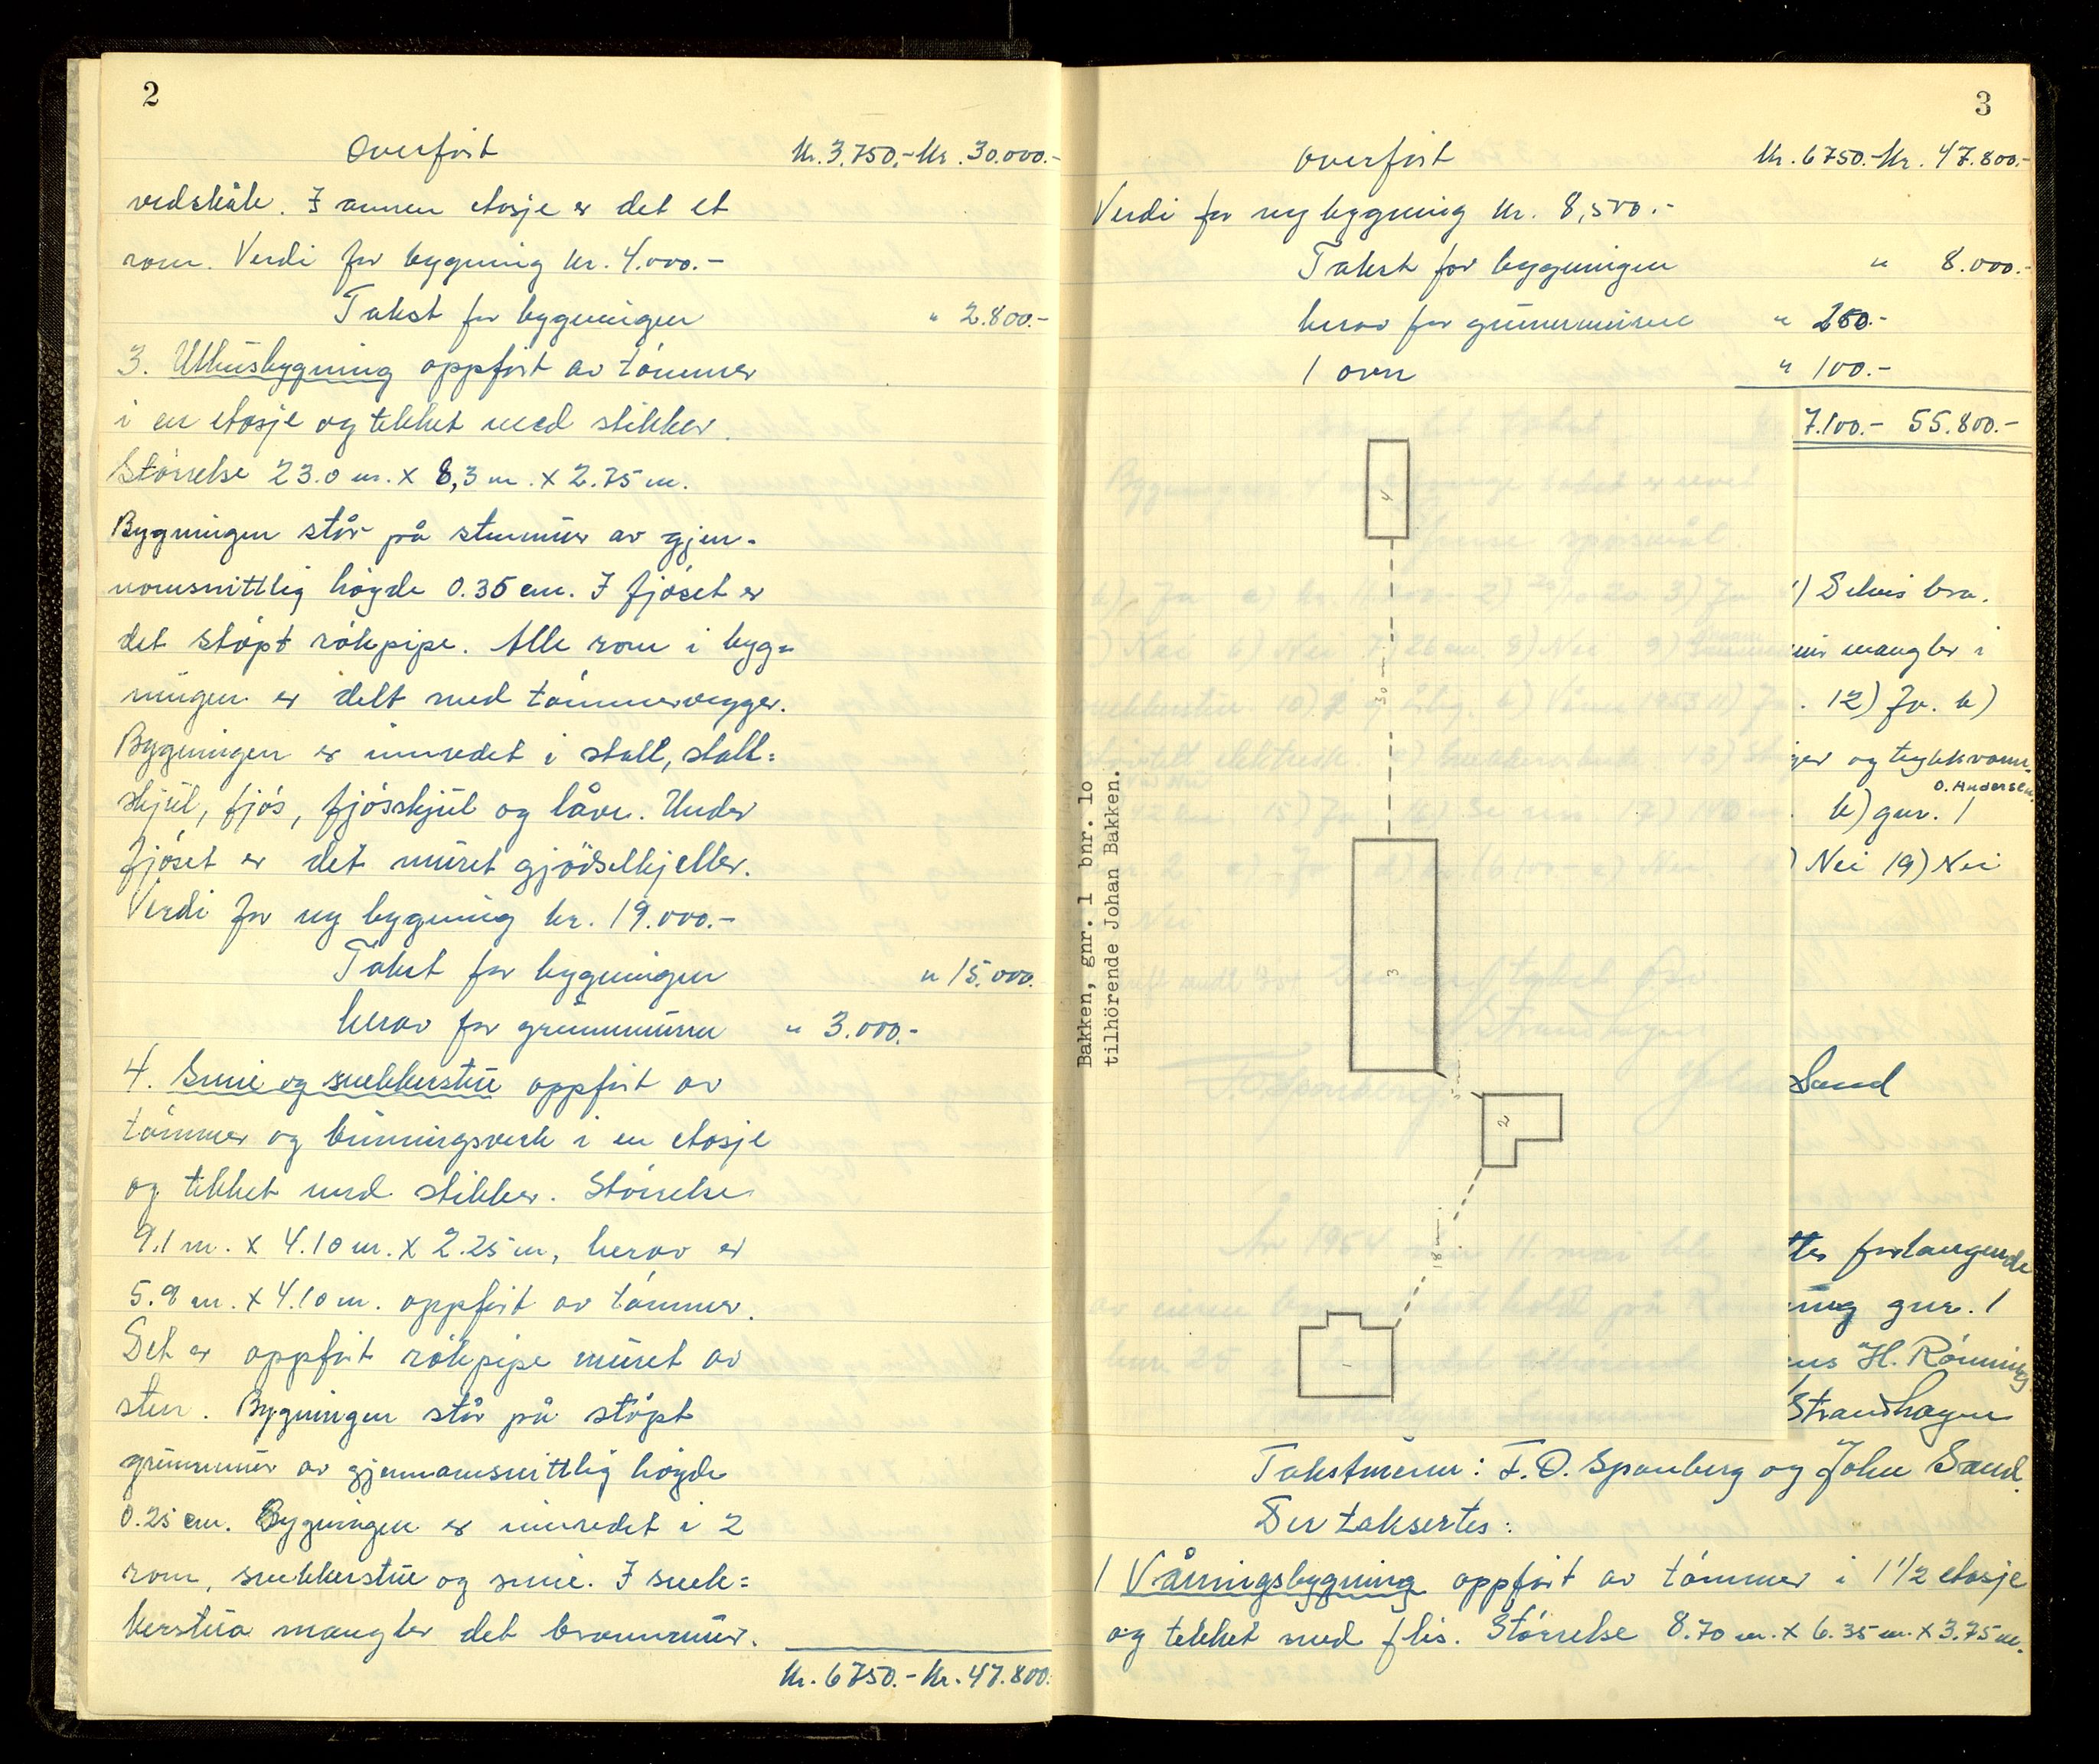 2
Overført Kr. 3.750.- Kr. 30.000.-
vedskåle. I annen etasje er det et
rom. Verdi for bygning kr. 4.000.-
Takst for bygningen " 2.800.-
3. Uthusbygning oppført av tømmer
i en etasje og tekket med stikker.
Størrelse 23.0 m. x 8,3 m. x 2.75 m.
Bygningen står på stenmur av gjen-
nomsnittlig høgde 0.35 cm. I fjøset er
det støpt rökpipe. Alle rom i byg=
ningen er delt med tömmervegger.
Bygningen er innredet i stall, stall=
skjul, fjös, fjösskjul og låve. Under
fjöset er det muret gjödselkjeller.
Verdi for ny bygning kr. 19.000.-
Takst for bygningen " 15.000.
herav for grunnmuren " 3.000.-
4. Smie og snekkerstue oppført av
tömmer og binningsverk i en etasje
og tekket med stikker. Størrelse
9.1 m. x 4.10 m. x 2.25 m, herav er
5.9 m. x 4.10 m. oppført av tömmer.
Det er oppført rökpipe muret av
sten. Bygningen står på støpt
grunnmur av gjennomsnittlig høgde
0.25 cm. Bygningen er innredet i 2
rom, snekkerstue og smie. I snek=
kerstua mangler det brannmur.
Kr. 6750.- Kr. 47.800.
3
Overført Kr. 6750.- Kr. 47.800.-
Verdi for ny bygning kr. 8,500.-
Takst for bygningen " 8.000.-
herav for grunnmuren " 250.-
1 ovn " 100.-
7.100.- 55.800.-
4
30
3
2
18 m.
1
Bakken, gnr. 1 bnr. 10
tilhörende Johan Bakken.
) Delvis bra.
mangler i
. 12) Ja. b)
og
O. Andersen.
b) gnr. 1
) Nei 19) Nei
Sand
forlangende
gnr. 1
H. Rönning
Strandhagen
Takstmenn: F. O. Spanberg og John Sand.
Der taksertes:
1 Våningsbygning oppført av tömmer i 1 1/2 etasje
og tekket med flis. Størrelse 8.70 m. x 6.35 m. x 3.75 m.